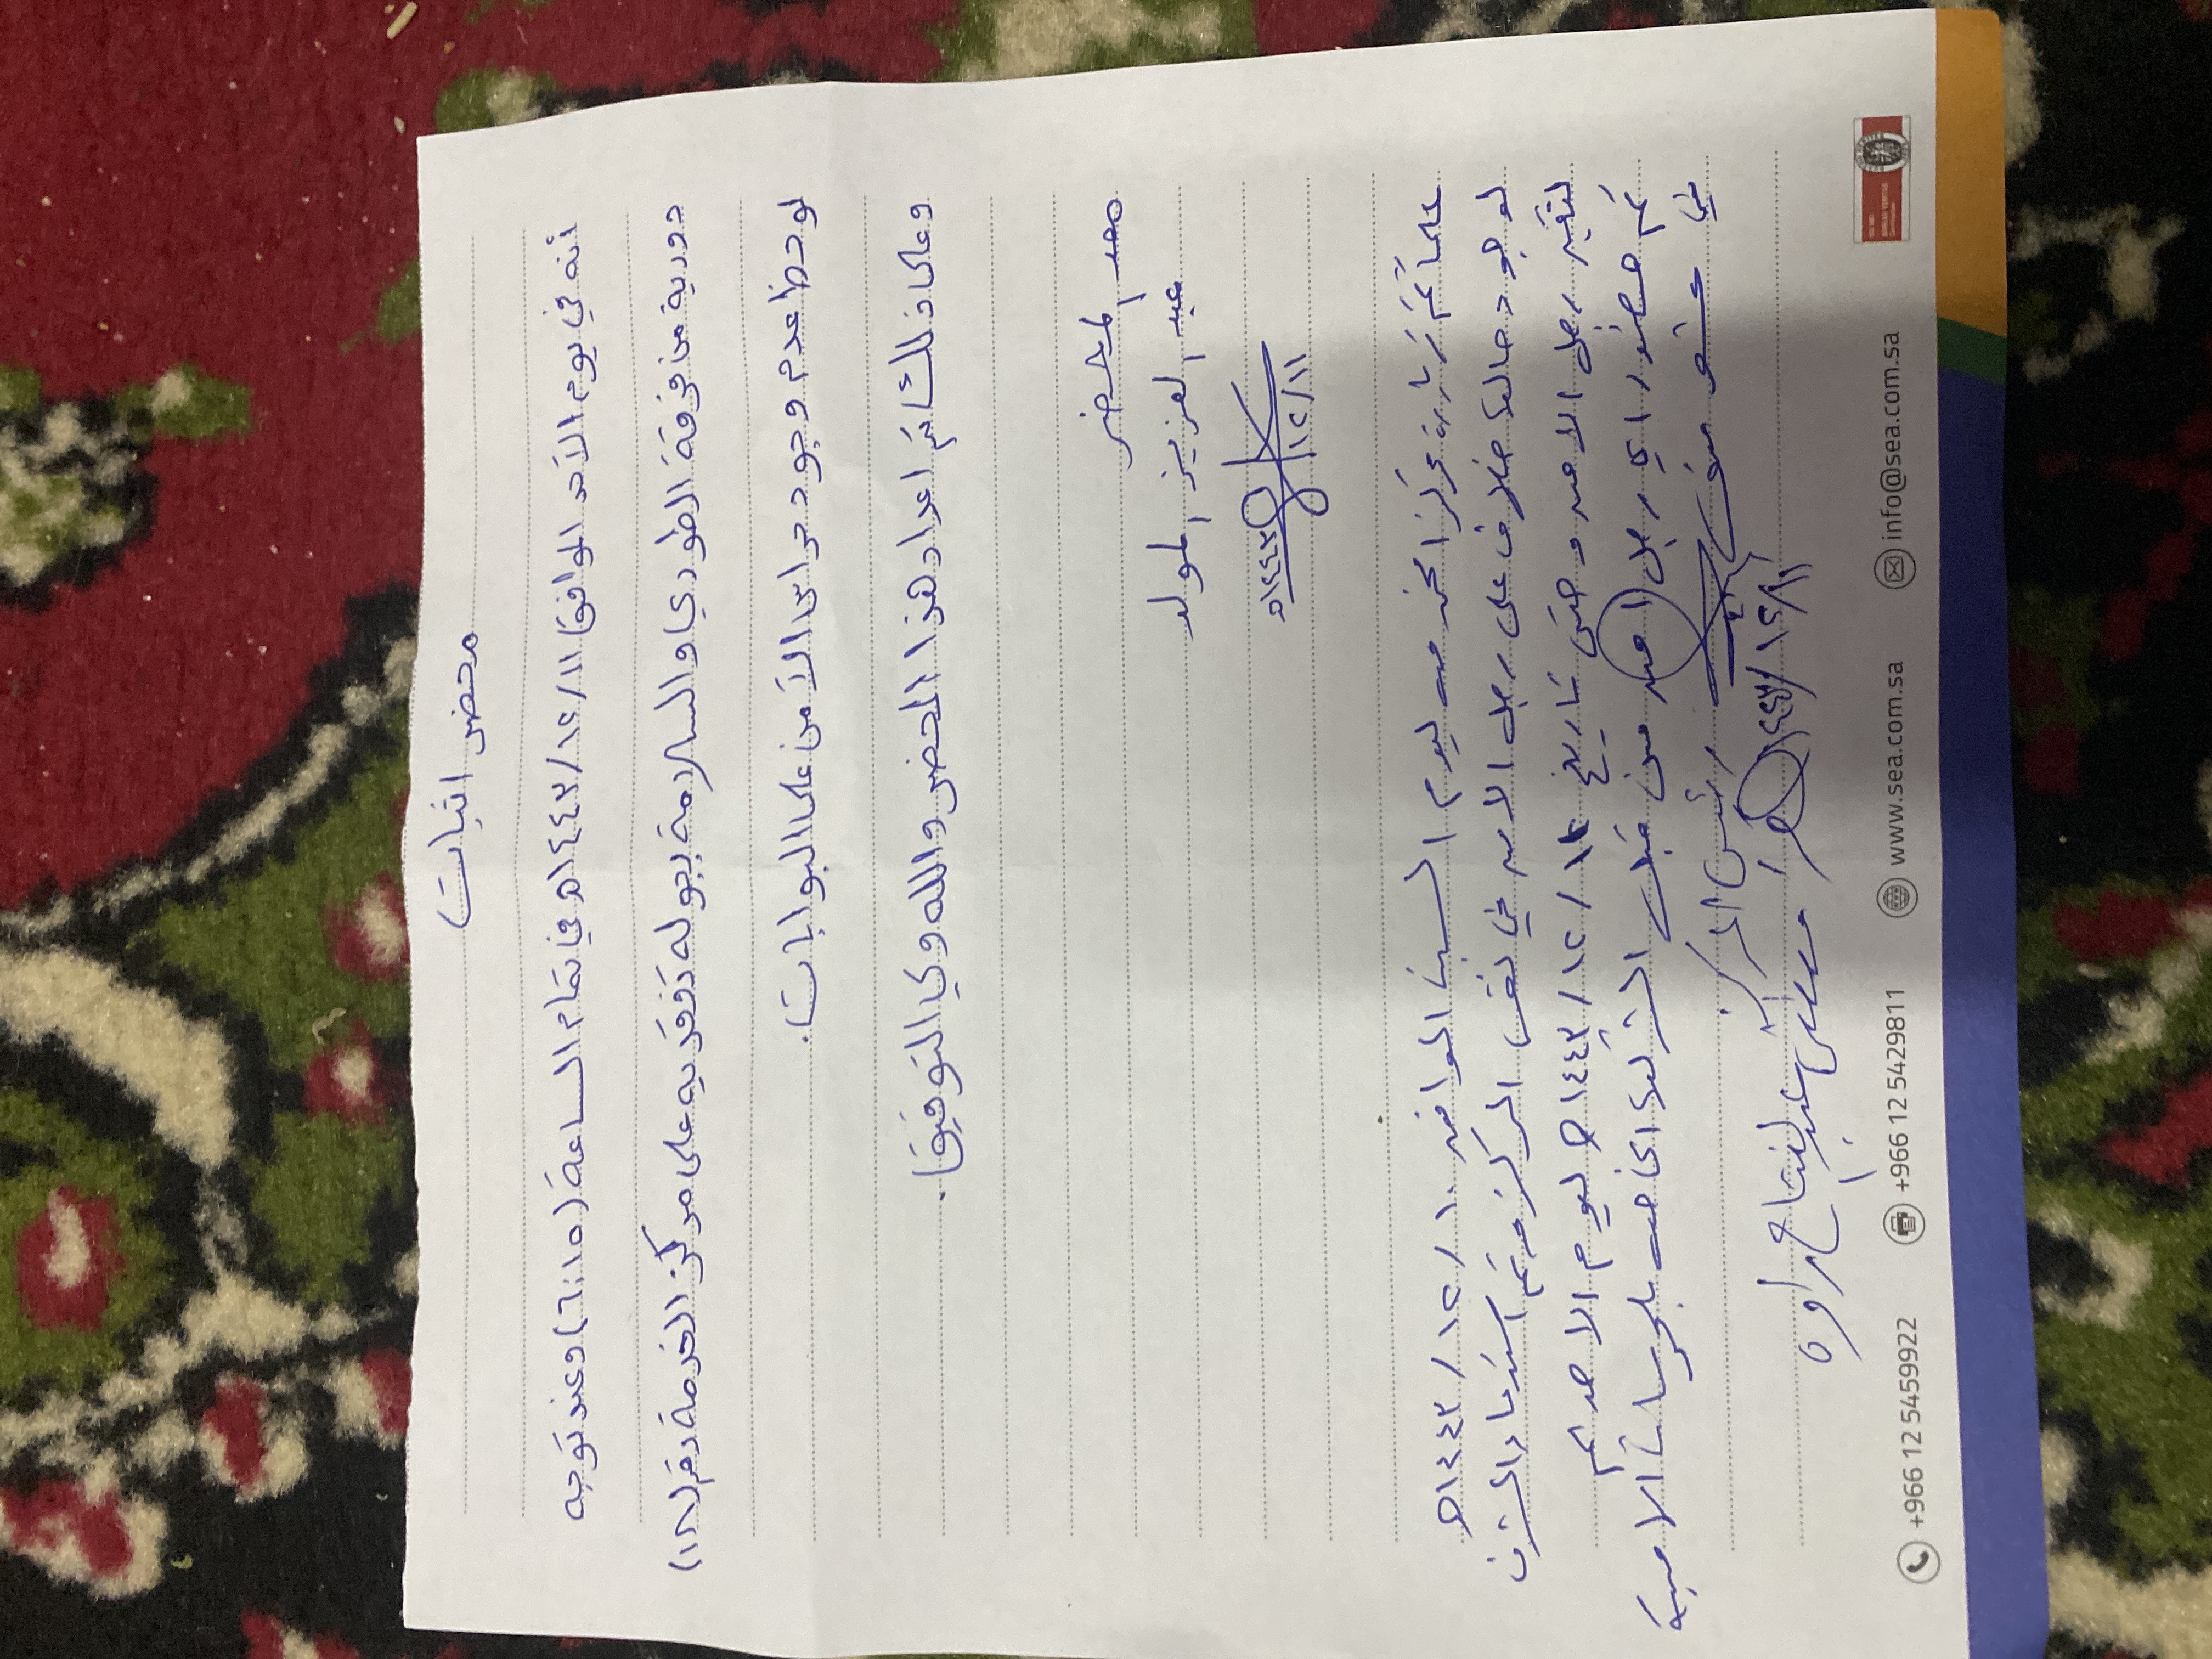 محضر اثبات
أنه في يوم الأحد الموافق ١٤٤٣/١٢/١١هـ في تمام الساعة (٦:١٥) وعند توجه
دورية من فرقة الطوري والسلامة بجوله تفقديه على مركز الخدمة رقم (١٨)
لوحظ عدم وجود حراس الأمن على البوابات.
وعلى ذلك تم اعداد هذا المحضر والله ولي التوفيق.
معد المحضر
عبد العزيز المولد
١٤٤٣هـ
١٢/١١
علماً تم زيارة مركز الخدمه ليوم السبت الموافق ١٤٤٣/١٢/١٠هـ
لوجود حالة خلاف على رجل الامن في نفس المركز وتم استدعاء المشرف
لتغير رجل الامن وحتى تاريخ ١٤٤٣/١٢/١١هـ ليوم الاحد لم
تم حضور اي رجل امن من قبل الشركة الخاصه بالحراسات الامنية
في مشعر منى رئيس المركز
١٤٤٣/١٢/١١هـ عبدالفتاح راوه
+966 12 5459922 +966 12 5429811 www.sea.com.sa info@sea.com.sa
BUREAU VERITAS